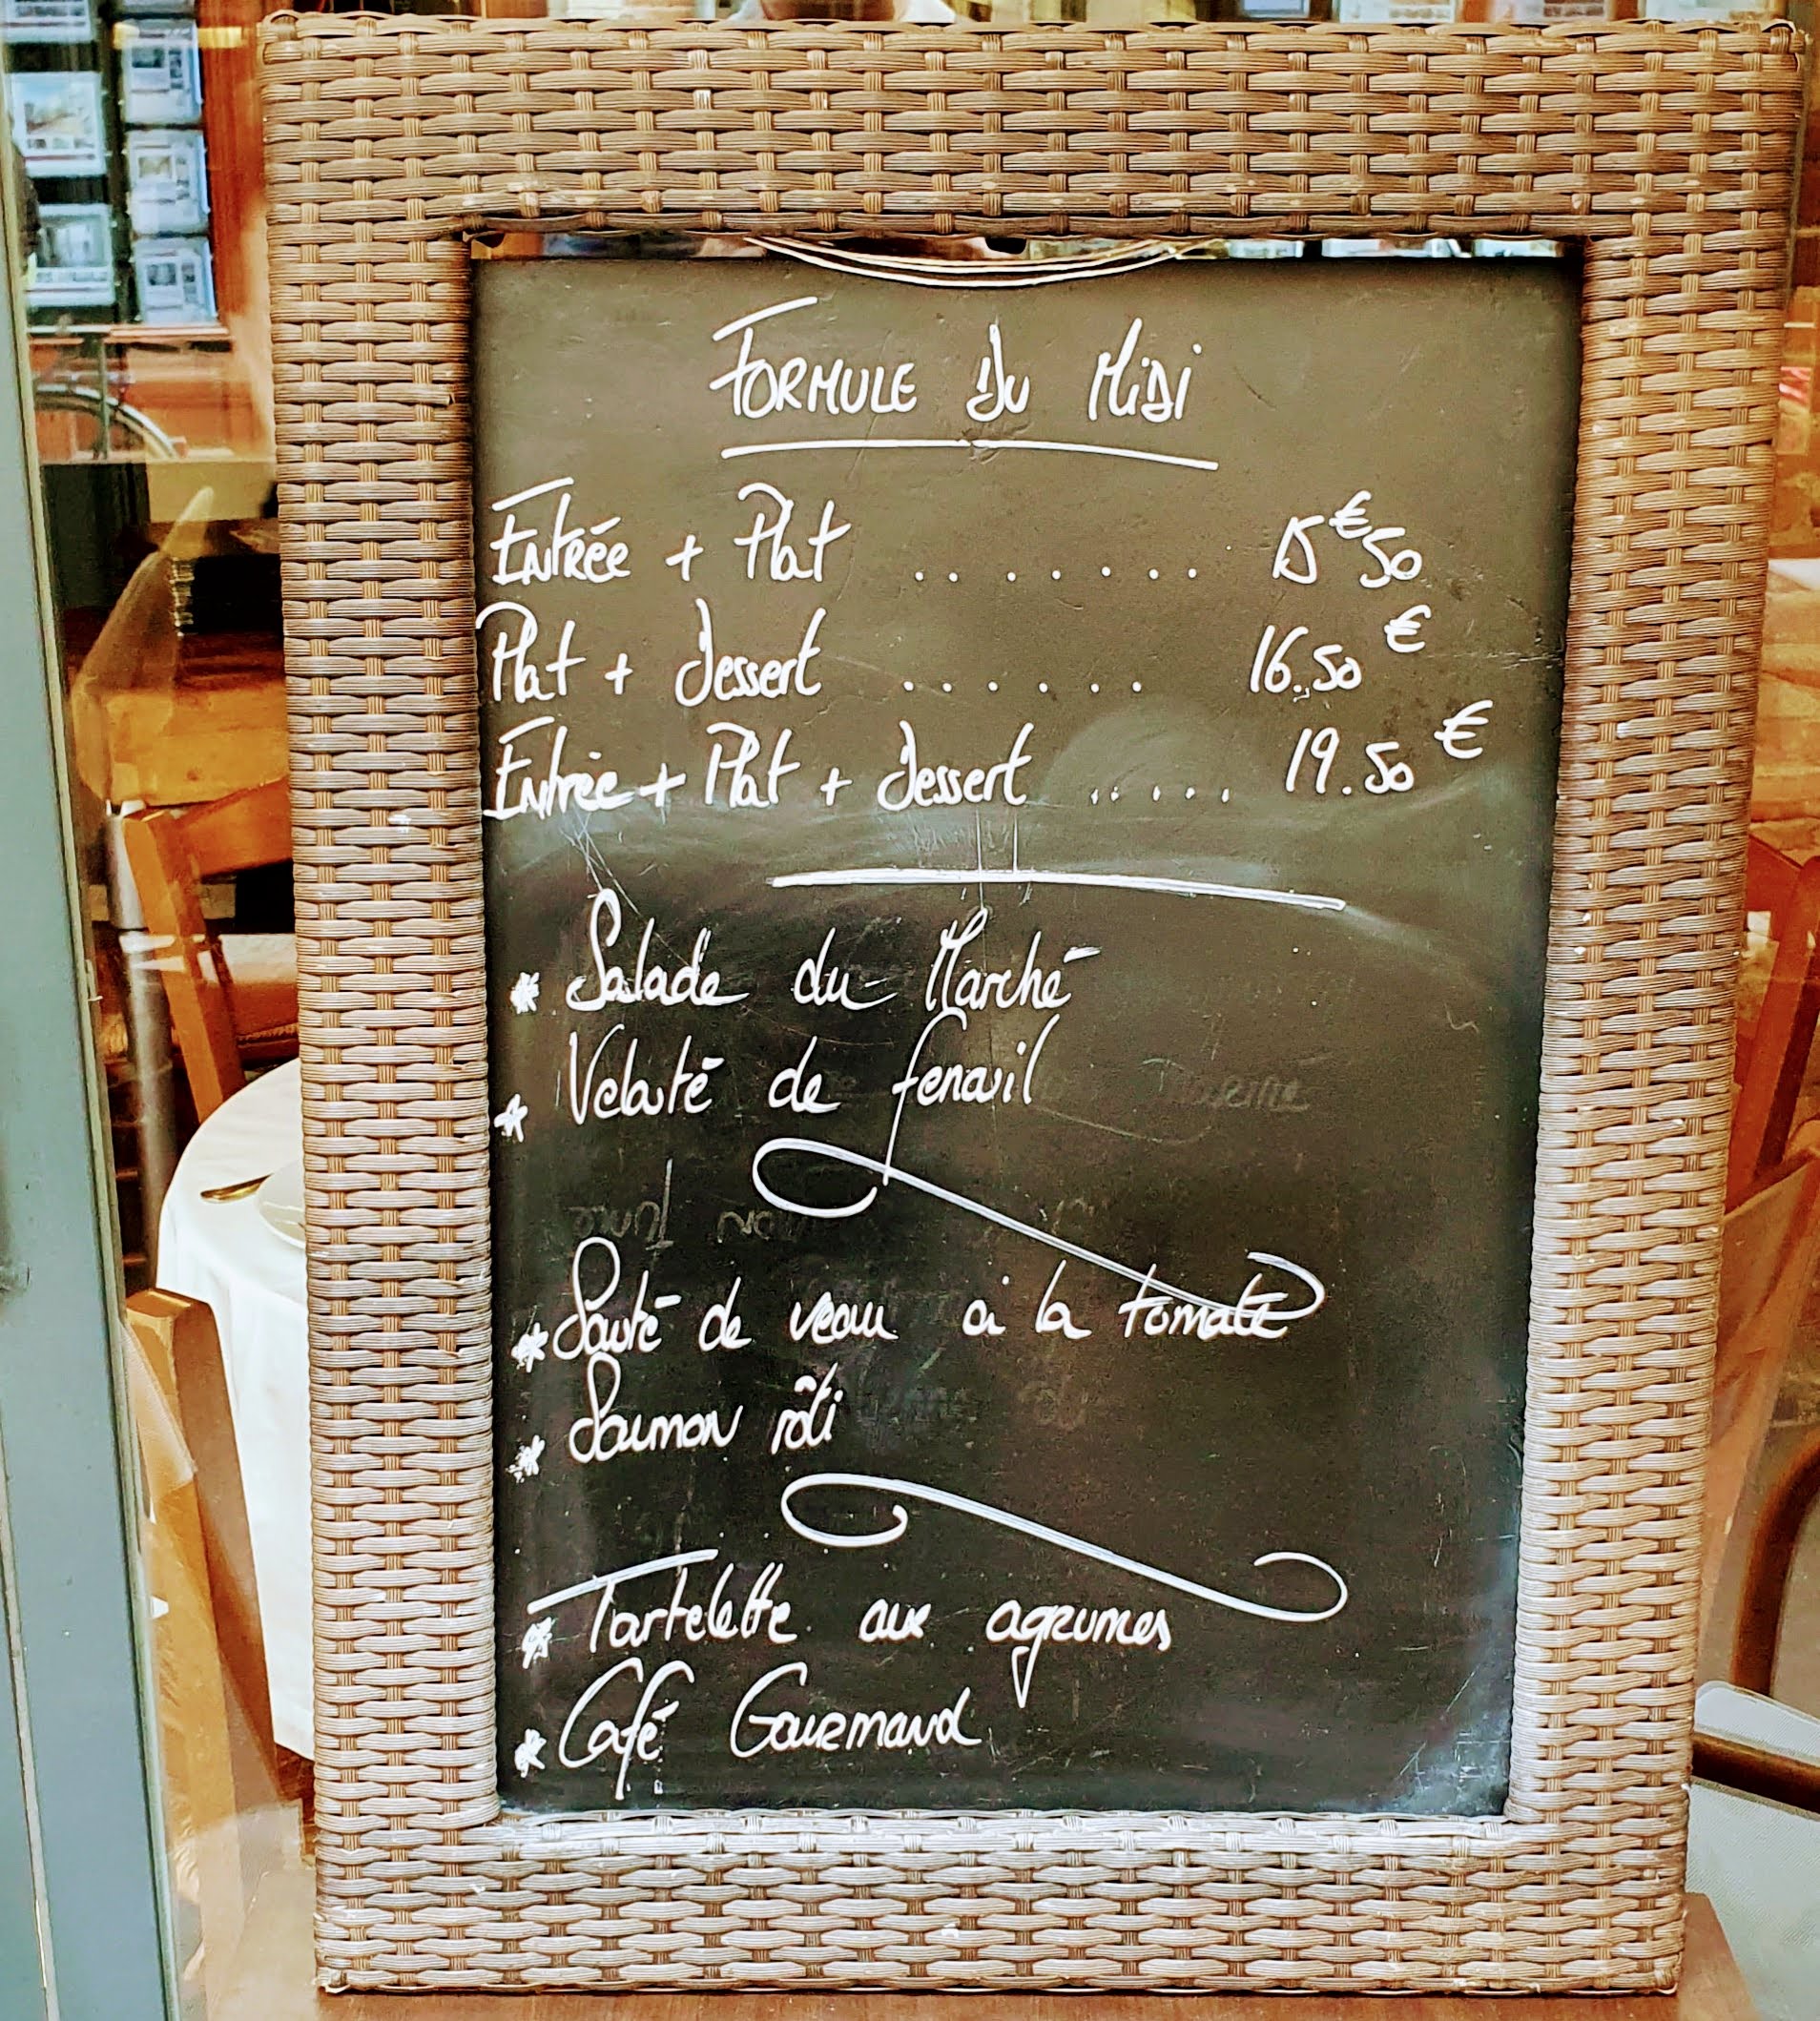 FORMULE DU MIDI
Entrée + Plat ....... 15€50
Plat + dessert ...... 16.50 €
Entrée + Plat + dessert ..... 19.50 €
* Salade du Marché
* Velouté de fenouil
* Sauté de veau à la tomate
* Saumon rôti
* Tartelette aux agrumes
* Café Gourmand